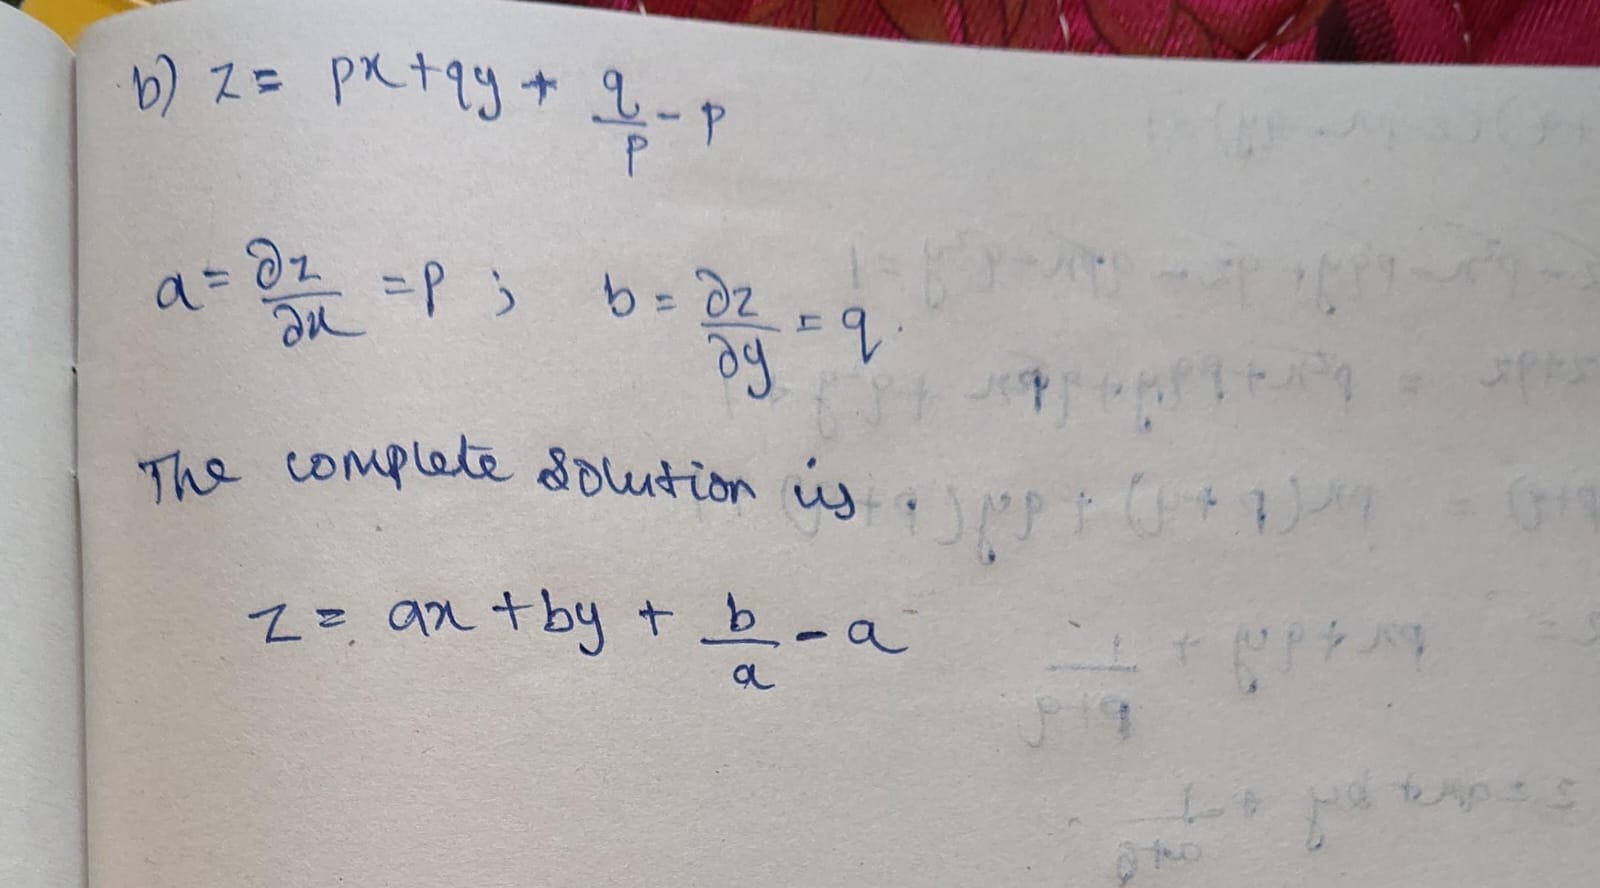 b) z = px + qy + q/p - p
a = ∂z/∂x = p ; b = ∂z/∂y = q.
The complete solution is
z = ax + by + b/a - a